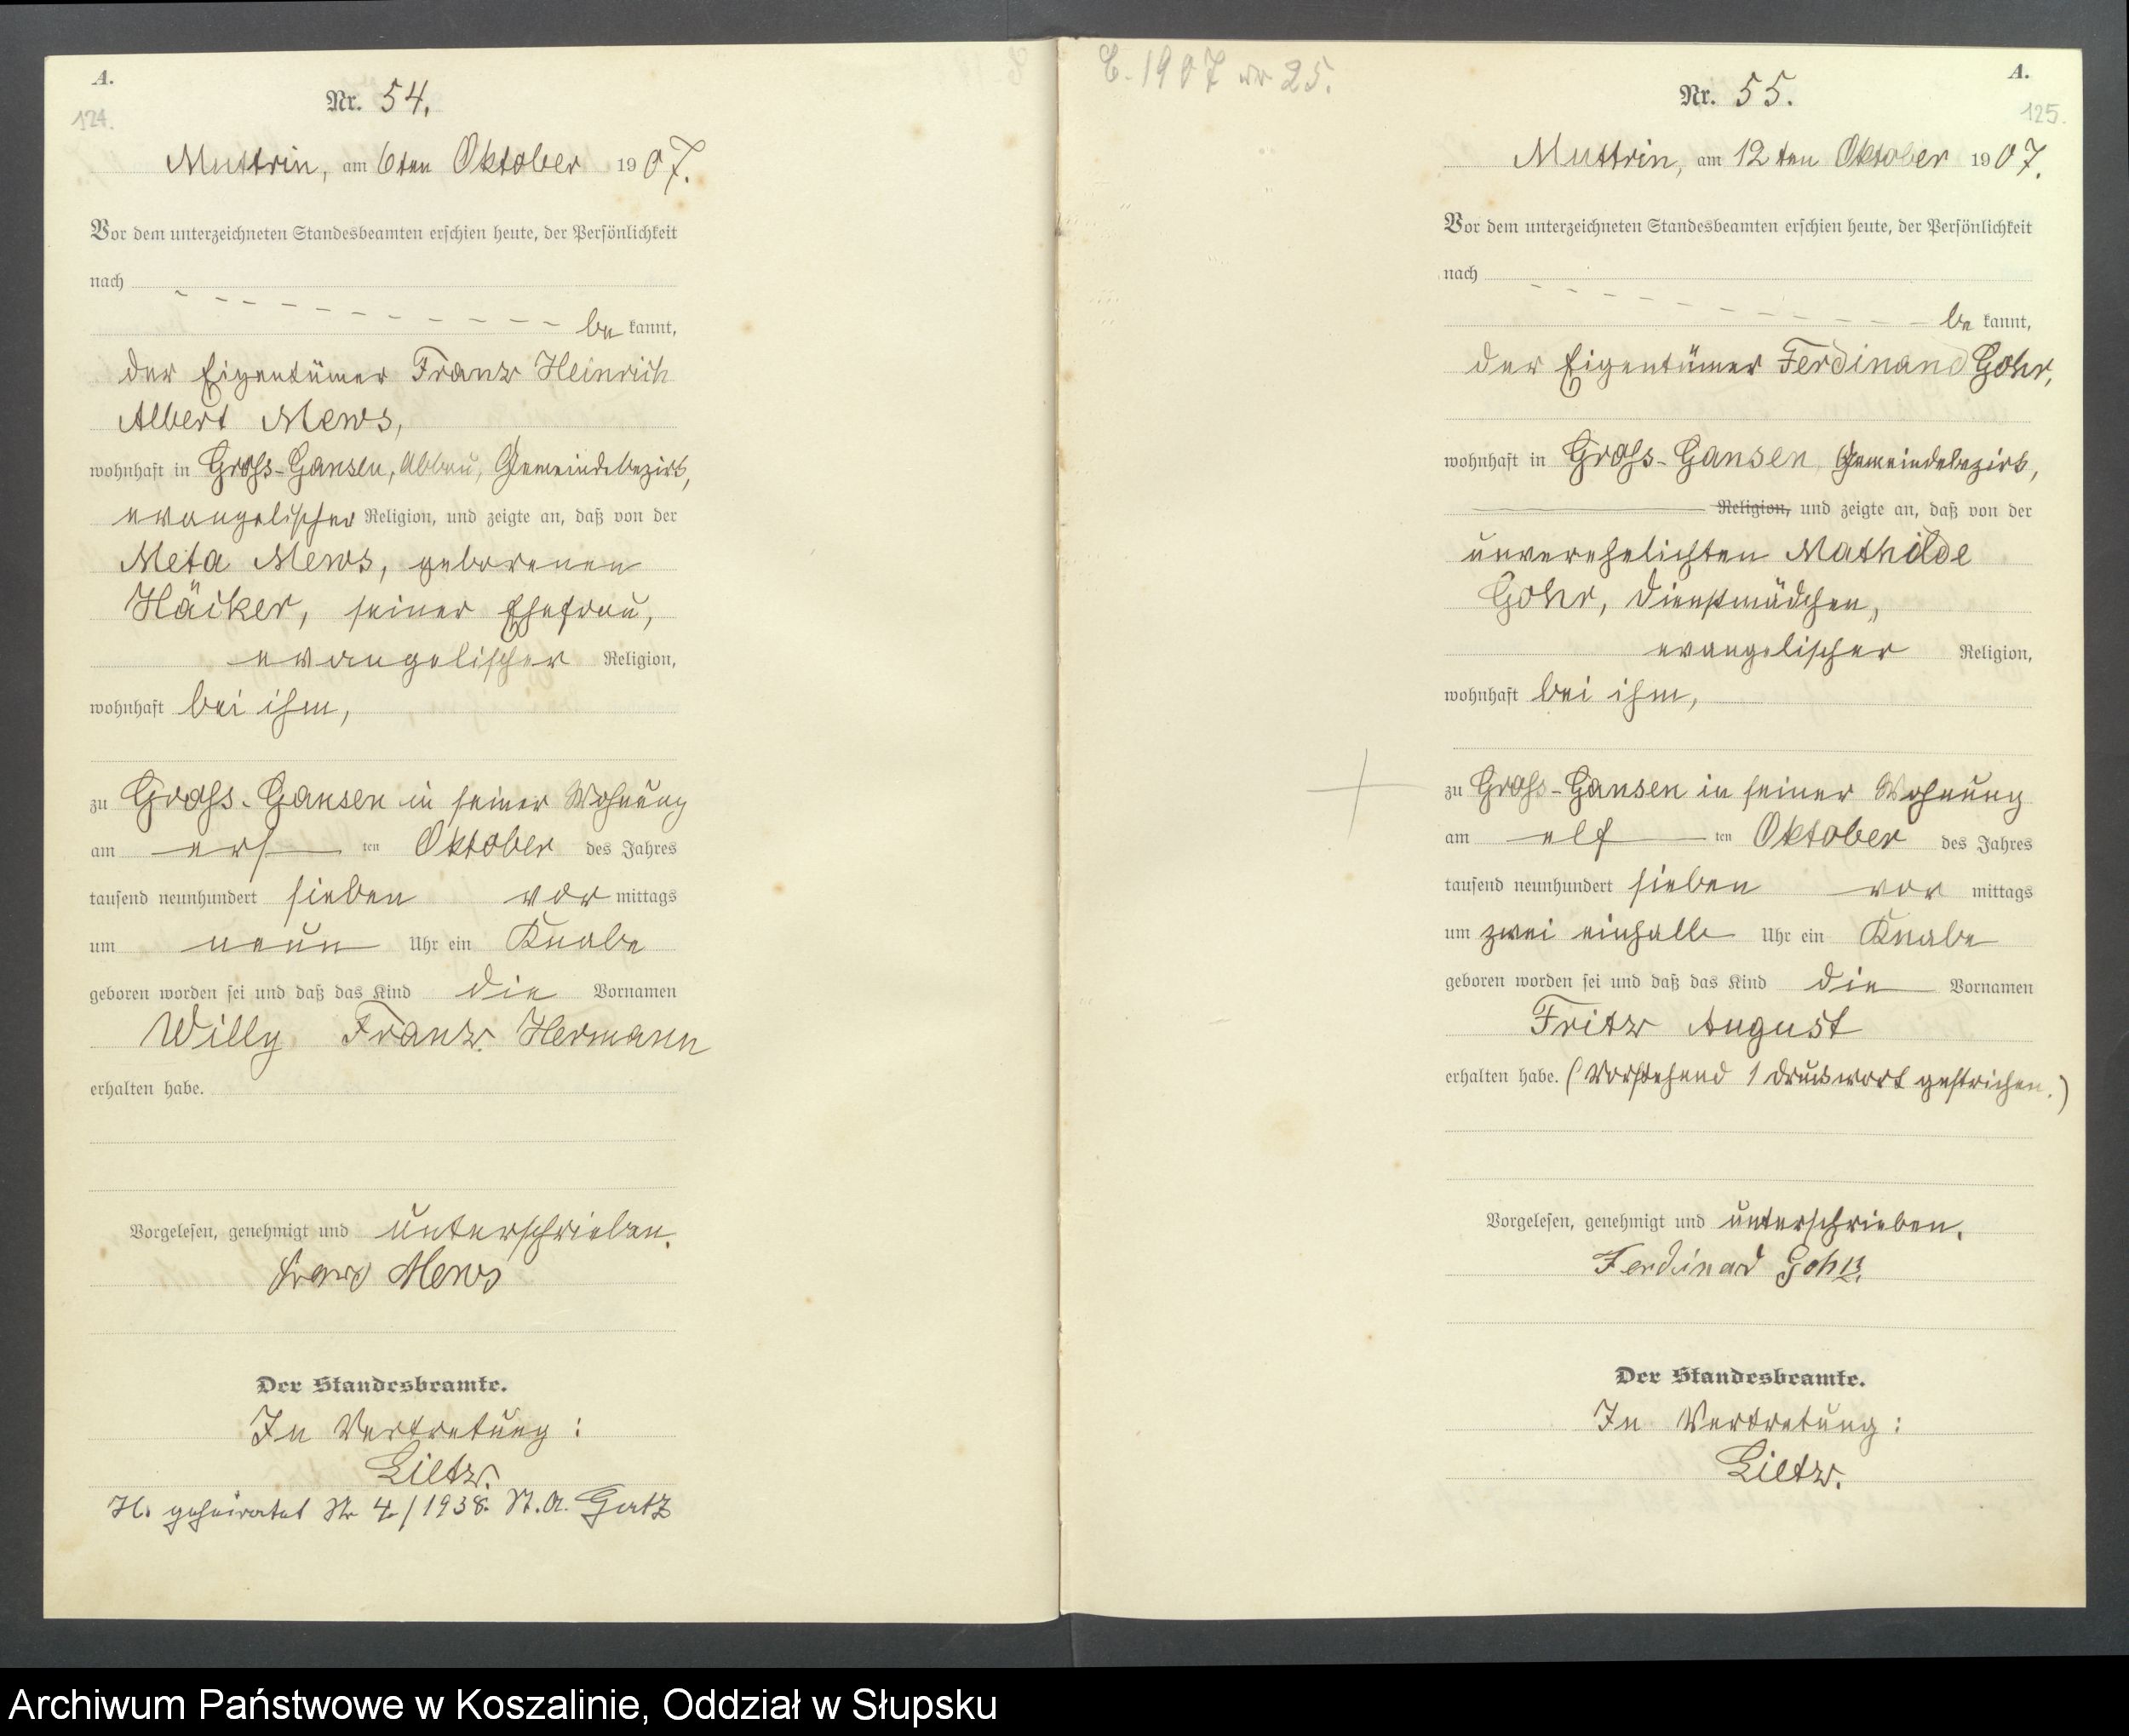 A.
124.
Nr. 54.
Muttrin, am 6ten Oktober 1907.
Vor dem unterzeichneten Standesbeamten erschien heute, der Persönlichkeit
nach
be kannt,
der Eigentümer Franz Heinrich
Albert Mews,
wohnhaft in Groß-Gansen, Abbau, Gemeindebezirk,
evangelischer Religion, und zeigte an, daß von der
Meta Mews, geborenen
Häcker, seiner Ehefrau,
evangelischer Religion,
wohnhaft bei ihm,
zu Groß-Gansen in seiner Wohnung
am ers ten Oktober des Jahres
tausend neunhundert sieben vor mittags
um neun Uhr ein Knabe
geboren worden sei und daß das Kind die Vornamen
Willy Franz Hermann
erhalten habe.
Vorgelesen, genehmigt und unterschrieben.
Franz Mews
Der Standesbeamte.
In Vertretung:
Lietz.
H. geheiratet Nr 4/1938. St.A. Gatz
1907 nr 25.
A.
125.
Nr. 55.
Muttrin, am 12ten Oktober 1907.
Vor dem unterzeichneten Standesbeamten erschien heute, der Persönlichkeit
nach
be kannt,
der Eigentümer Ferdinand Gohr,
wohnhaft in Groß-Gansen, Gemeindebezirk,
Religion, und zeigte an, daß von der
unverehelichten Mathilde
Gohr, Dienstmädchen,
evangelischer Religion,
wohnhaft bei ihm,
zu Groß-Gansen in seiner Wohnung
am elf ten Oktober des Jahres
tausend neunhundert sieben vor mittags
um zwei einhalb Uhr ein Knabe
geboren worden sei und daß das Kind die Vornamen
Fritz August
erhalten habe. (Vorstehend 1 Druckwort gestrichen.)
Vorgelesen, genehmigt und unterschrieben.
Ferdinad Gohr
Der Standesbeamte.
In Vertretung:
Lietz.
Archiwum Państwowe w Koszalinie, Oddział w Słupsku